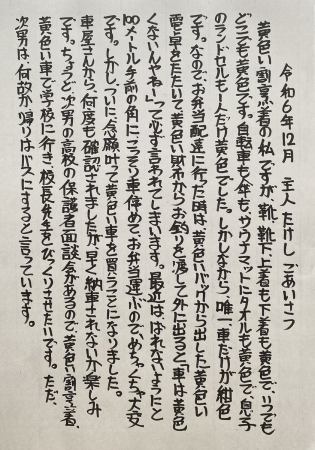 令和6年12月 主人たけし ごあいさつ
黄色い割烹着の私ですが、靴、靴下、上着も下着も黄色で、いつでも
どこでも黄色です。自転車も傘も、サウナマットにタオルも黄色で、息子
のランドセルも1人だけ黄色でした。しかしながら、唯一、車だけが紺色
です。なので、お弁当配達に行った時は、黄色いバックから出した黄色い
電卓をたたいて黄色い財布からお釣りを渡して外に出ると「車は黄色
くないんやねー」って必ず言われてしまいます。最近は、ばれないようにと
100メートル手前の角に、こっそり車停めて、お弁当運ぶのでめちゃくちゃ大変
です。しかし、ついに念願叶って黄色い車を買うことになりました。
車屋さんから、何度も確認されましたが、早く納車されないか楽しみ
です。ちょうど、次男の高校の保護者面談会があるので、黄色い割烹着、
黄色い車で学校に行き、校長先生をびっくりさせたいです。ただ、
次男は、何故か帰りはバスにすると言っています。